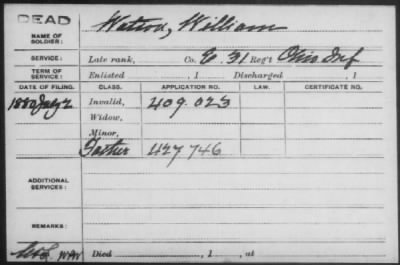 DEAD
NAME OF SOLDIER: Watson, William
SERVICE: Late rank, Co. E. 31 Reg't Ohio Inf
TERM OF SERVICE: Enlisted , 1 Discharged , 1
DATE OF FILING. CLASS. APPLICATION NO. LAW. CERTIFICATE NO.
1880 July 2 Invalid, 409.023
Widow,
Minor,
Father 427746
ADDITIONAL SERVICES:
REMARKS:
Died , 1 , at